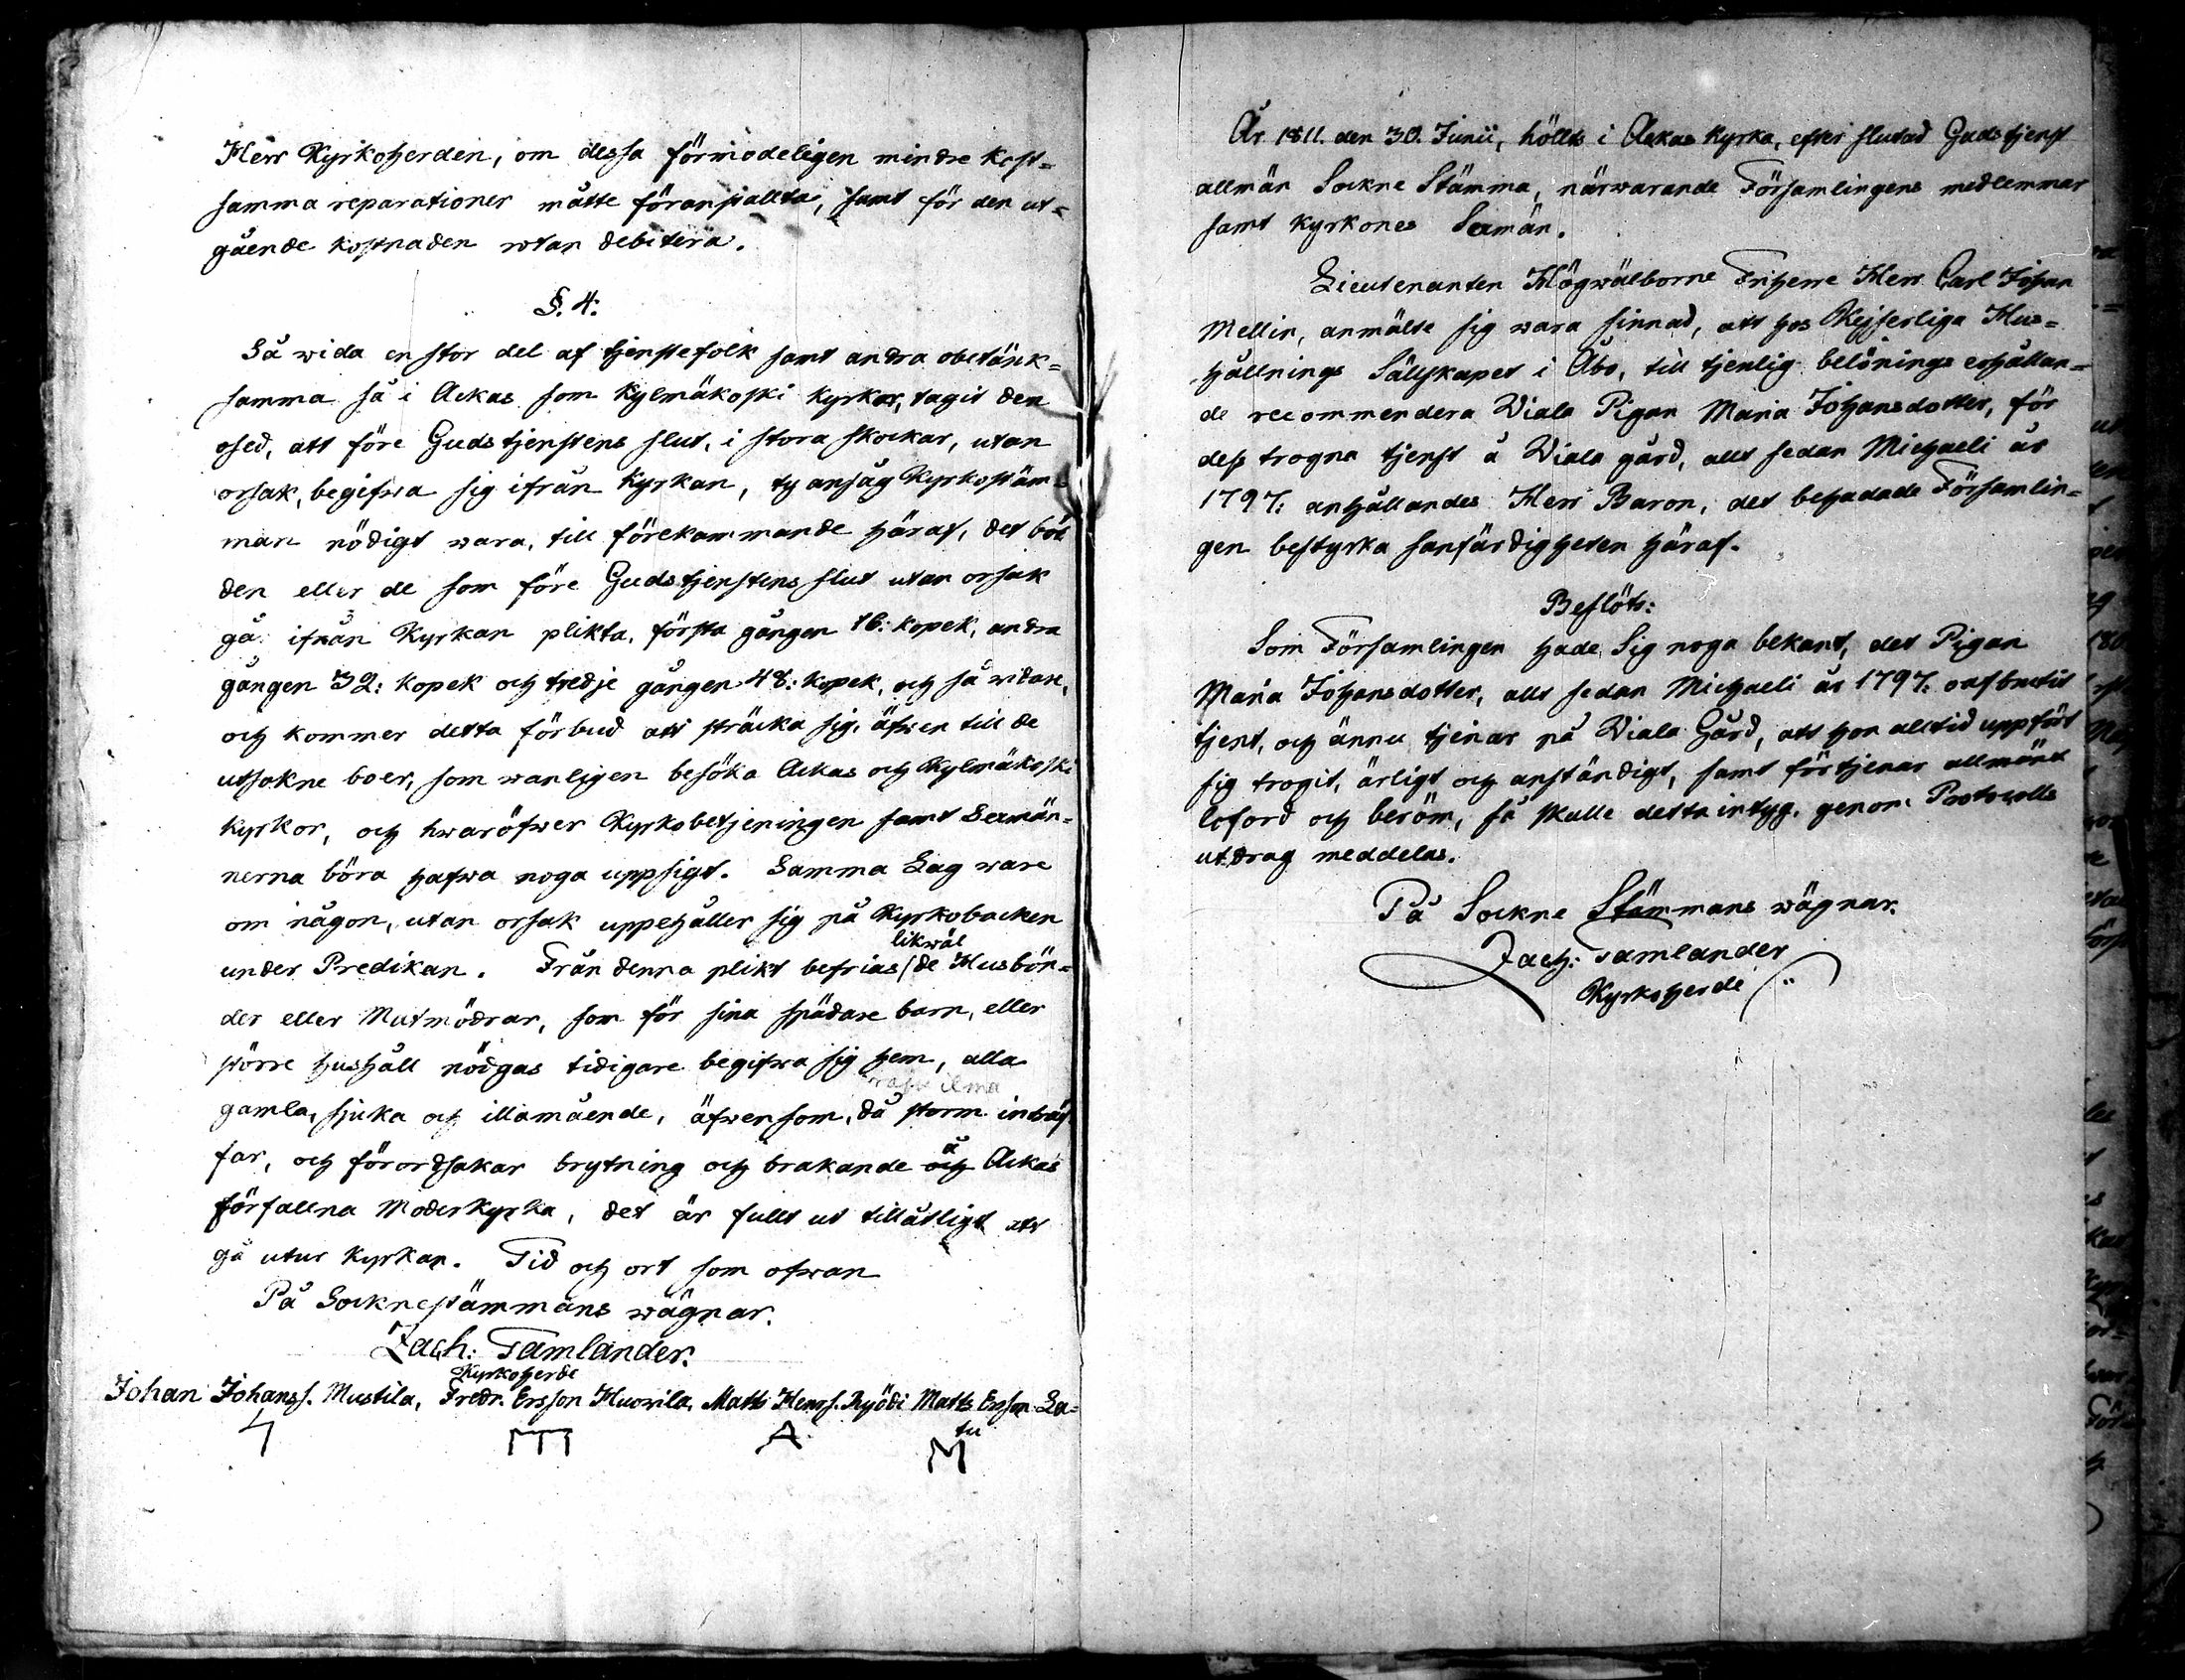 Herr Kyrkoherden, om dessa förmodeligen mindre kost=
samma reparationer måtte föranstallta, samt för den ut=
gående kostnaden rotan debitera.
§. 4:
Så wida en stor del af tjenstefolk samt andra obetänk=
samma så i Ackas som Kylmäkoski kyrkor, tagit den
osed, att före Gudstjenstens slut, i stora skockar, utan
orsak, begifwa sig ifrån Kyrkan, ty ansåg Kyrkostäm=
man nödigt wara, till förekommande häraf, det bör
den eller de som före Gudstjenstens slut utan orsak
gå ifrån Kyrkan plikta, första gången 16: kopek, andra
gången 32: kopek och tredje gången 48: kopek, och så widare,
och kommer detta förbud att sträcka sig, äfwen till de
utsokne boer, som wanligen besöka Ackas och Kylmäkoski
kyrkor, och hwaröfwer Kyrkobetjeningen samt Sexmän=
nerna böra hafwa noga uppsigt. Samma Lag ware
om någon, utan orsak uppehåller sig på Kyrkobacken
likwäl
under Predikan. Från denna plikt befrias / de Husbön=
der eller Matmödrar, som för sina spädare barn, eller
större hushåll nödgas tidigare begifwa sig hem, alla
gamla, sjuka och illamående, äfwensom, då storm inträf
å
far, och förordsakar brytning och brakande och Ackas
förfallna Moderkyrka, det är fullt ut tillåtligt att
gå utur kyrkan. Tid och ort som ofwan
På Socknestämmans wägnar.
Zach: Tamlander.
Kyrkoherde
Johan Johanss. Mustila, Fredr. Ersson Huovila, Matts Henrs. Ryödi Matts Ersson La=
tu
A M
År 1811. den 30. Junii, hölls i Ackas Kyrka, efter slutad Gudstjenst
allmän Sockne Stämma, närwarande Församlingens medlemmar
samt kyrkones Sexmän.
Lieutenanten Högwälborne Friherre Herr Carl Johan
Mellin, anmälte sig wara sinnad, att hos Kejserliga Hus=
hållnings Sällskapet i Åbo, till tjenlig belönings erhållan=
de recommendera Viala Pigan Maria Johansdotter, för
dess trogna tjenst å Viala gård, allt sedan Michaeli år
1797: anhållandes Herr Baron, det behadade Församlin=
gen bestyrka sanfärdigheten häraf.
Beslöts:
Som Församlingen hade Sig noga bekant, det Pigan
Maria Johansdotter, allt sedan Michaeli år 1797: oafbrutit
tjent, och ännu tjenar på Viala Gård, att hon alltid uppfört
sig trogit, ärligt och anständigt, samt förtjenar allmänt
loford och beröm, så skulle detta intyg, genom Protocolls
utdrag meddelas.
På Sockne Stämmans wägnar.
Zach: Tamlander
Kyrkoherde